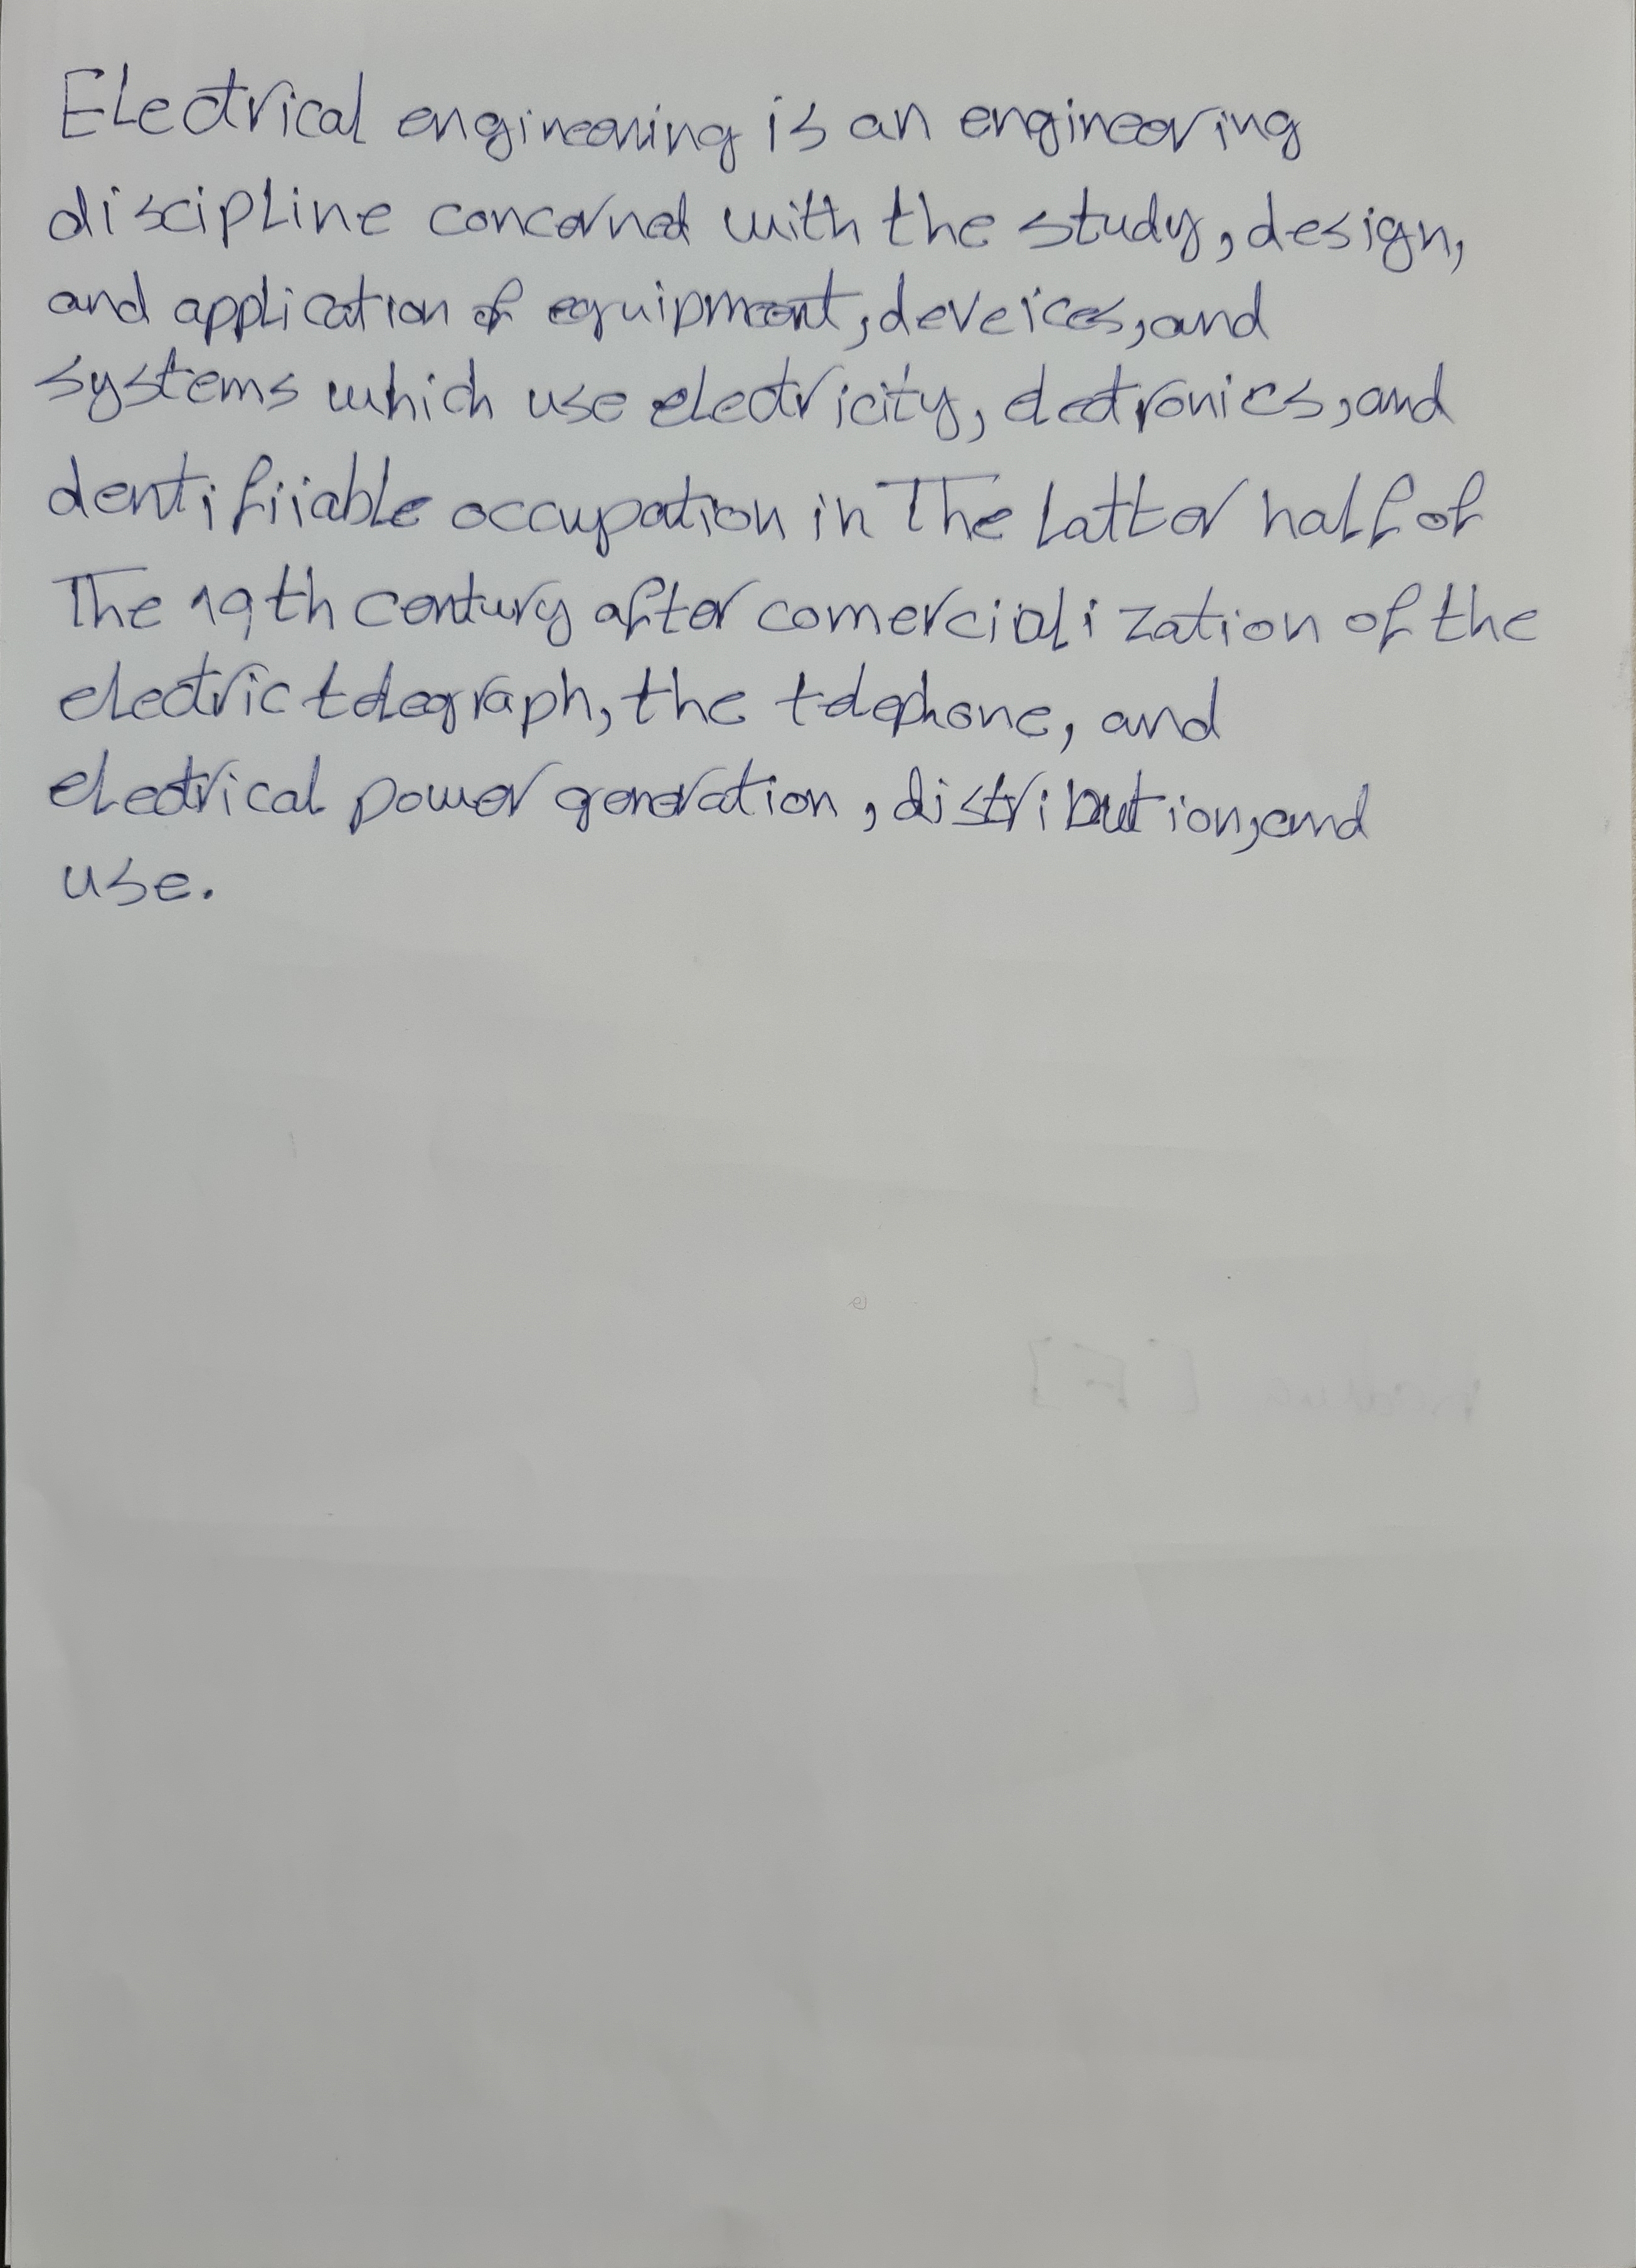 Electrical engineering is an engineering
discipline concerned with the study, design,
and application of equipment, deveices, and
systems which use electricity, electronics, and
dentifiiable occupation in The latter half of
The 19th century after comercialization of the
electric telegraph, the telephone, and
electrical power generation, distribution, and
use.